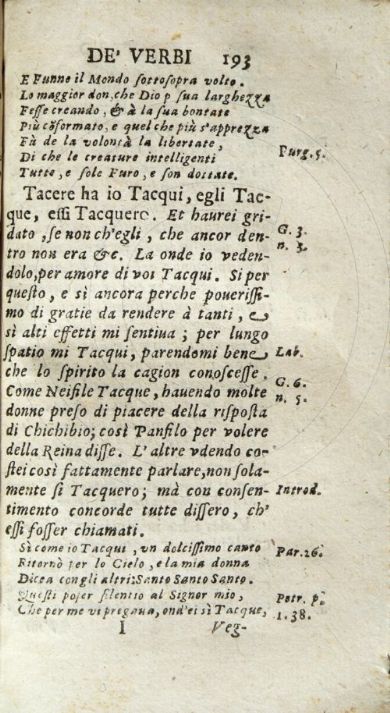 DE' VERBI 193
E Funno il Mondo sottosopra volto.
Lo maggior don, che Dio p sua larghezza
Fesse creando, & à la sua bontate
Più cõformato, e quel che più s'apprezza
Fà de la volontà la libertate, Purg. 5.
Di che le creature intelligenti
Tutte, e sole Furo, e son dottate.
Tacere ha io Tacqui, egli Tac-
que, essi Tacquero. Et haurei gri-
dato, se non ch'egli, che ancor den- G. 3.
tro non era &c. La onde io veden- n. 3.
dolo, per amore di voi Tacqui. Si per
questo, e sì ancora perche pouerissi-
mo di gratie da rendere à tanti, e
sì alti effetti mi sentiua; per lungo
spatio mi Tacqui, parendomi bene Lab.
che lo spirito la cagion conoscesse.
Come Neifile Tacque, hauendo molte G. 6.
donne preso di piacere della risposta n. 5.
di Chichibio; così Panfilo per volere
della Reina disse. L'altre vdendo co-
stei così fattamente parlare, non sola-
mente si Tacquero; mà con consen- Introd.
timento concorde tutte dissero, ch'
essi fosser chiamati.
Sì come io Tacqui, vn dolcissimo canto Par. 26.
Ritornò per lo Cielo, e la mia donna
Dicea con gli altri: Santo Santo Santo.
Questi poser silentio al Signor mio, Petr. p.
Che per me vi pregaua, ond'ei sì Tacque, 1. 38.
I Veg-